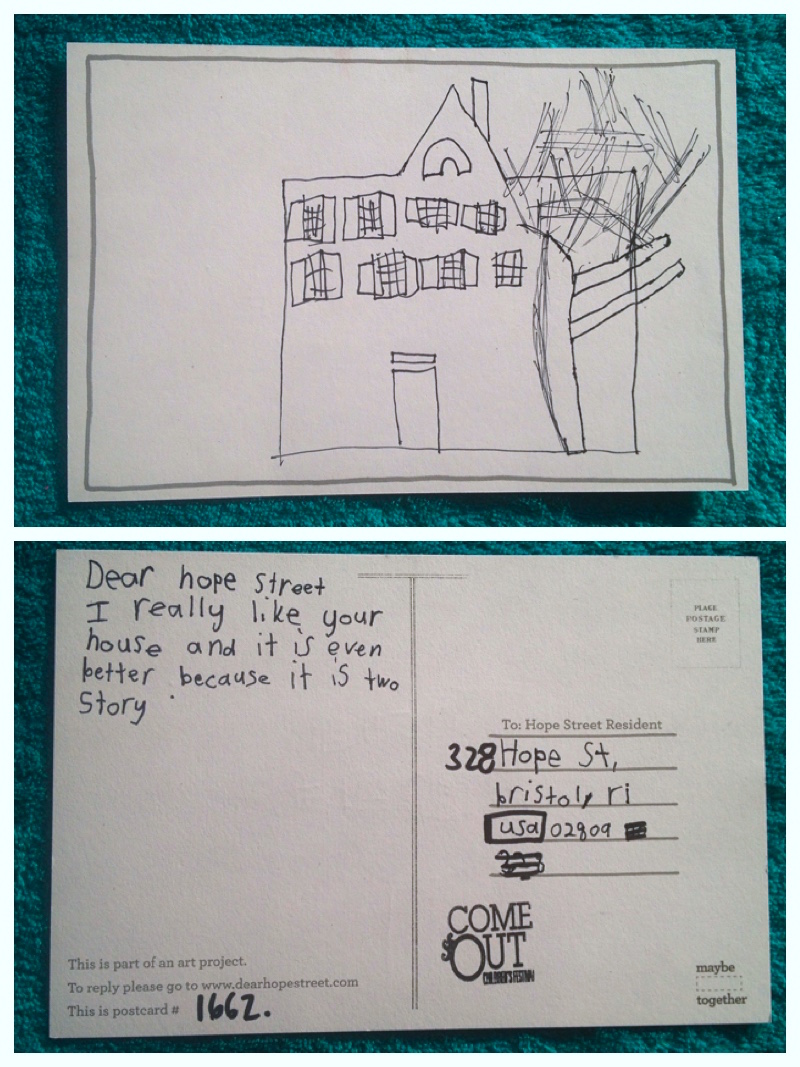 Dear hope street
I really like your
house and it is even
better because it is two
story.
PLACE
POSTAGE
STAMP
HERE
To: Hope Street Resident
328 Hope St,
bristol, ri
usa 02809
COME
OUT
CHILDREN'S FESTIVAL
This is part of an art project.
To reply please go to www.dearhopestreet.com
This is postcard # 1662.
maybe
together